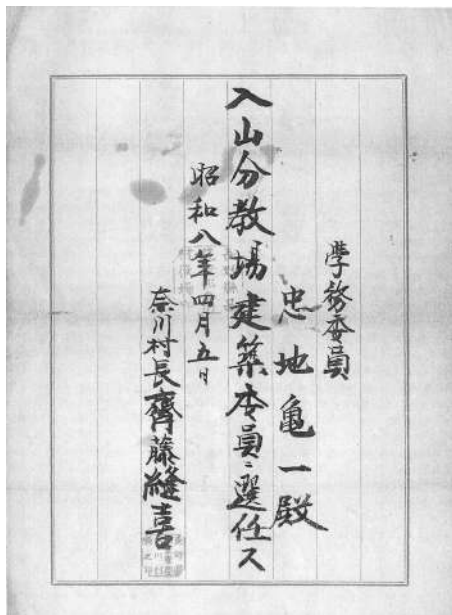 學務委員
忠地亀一殿
入山分教場建築委員ニ選任ス
昭和八年四月五日
奈川村長齊藤縫喜